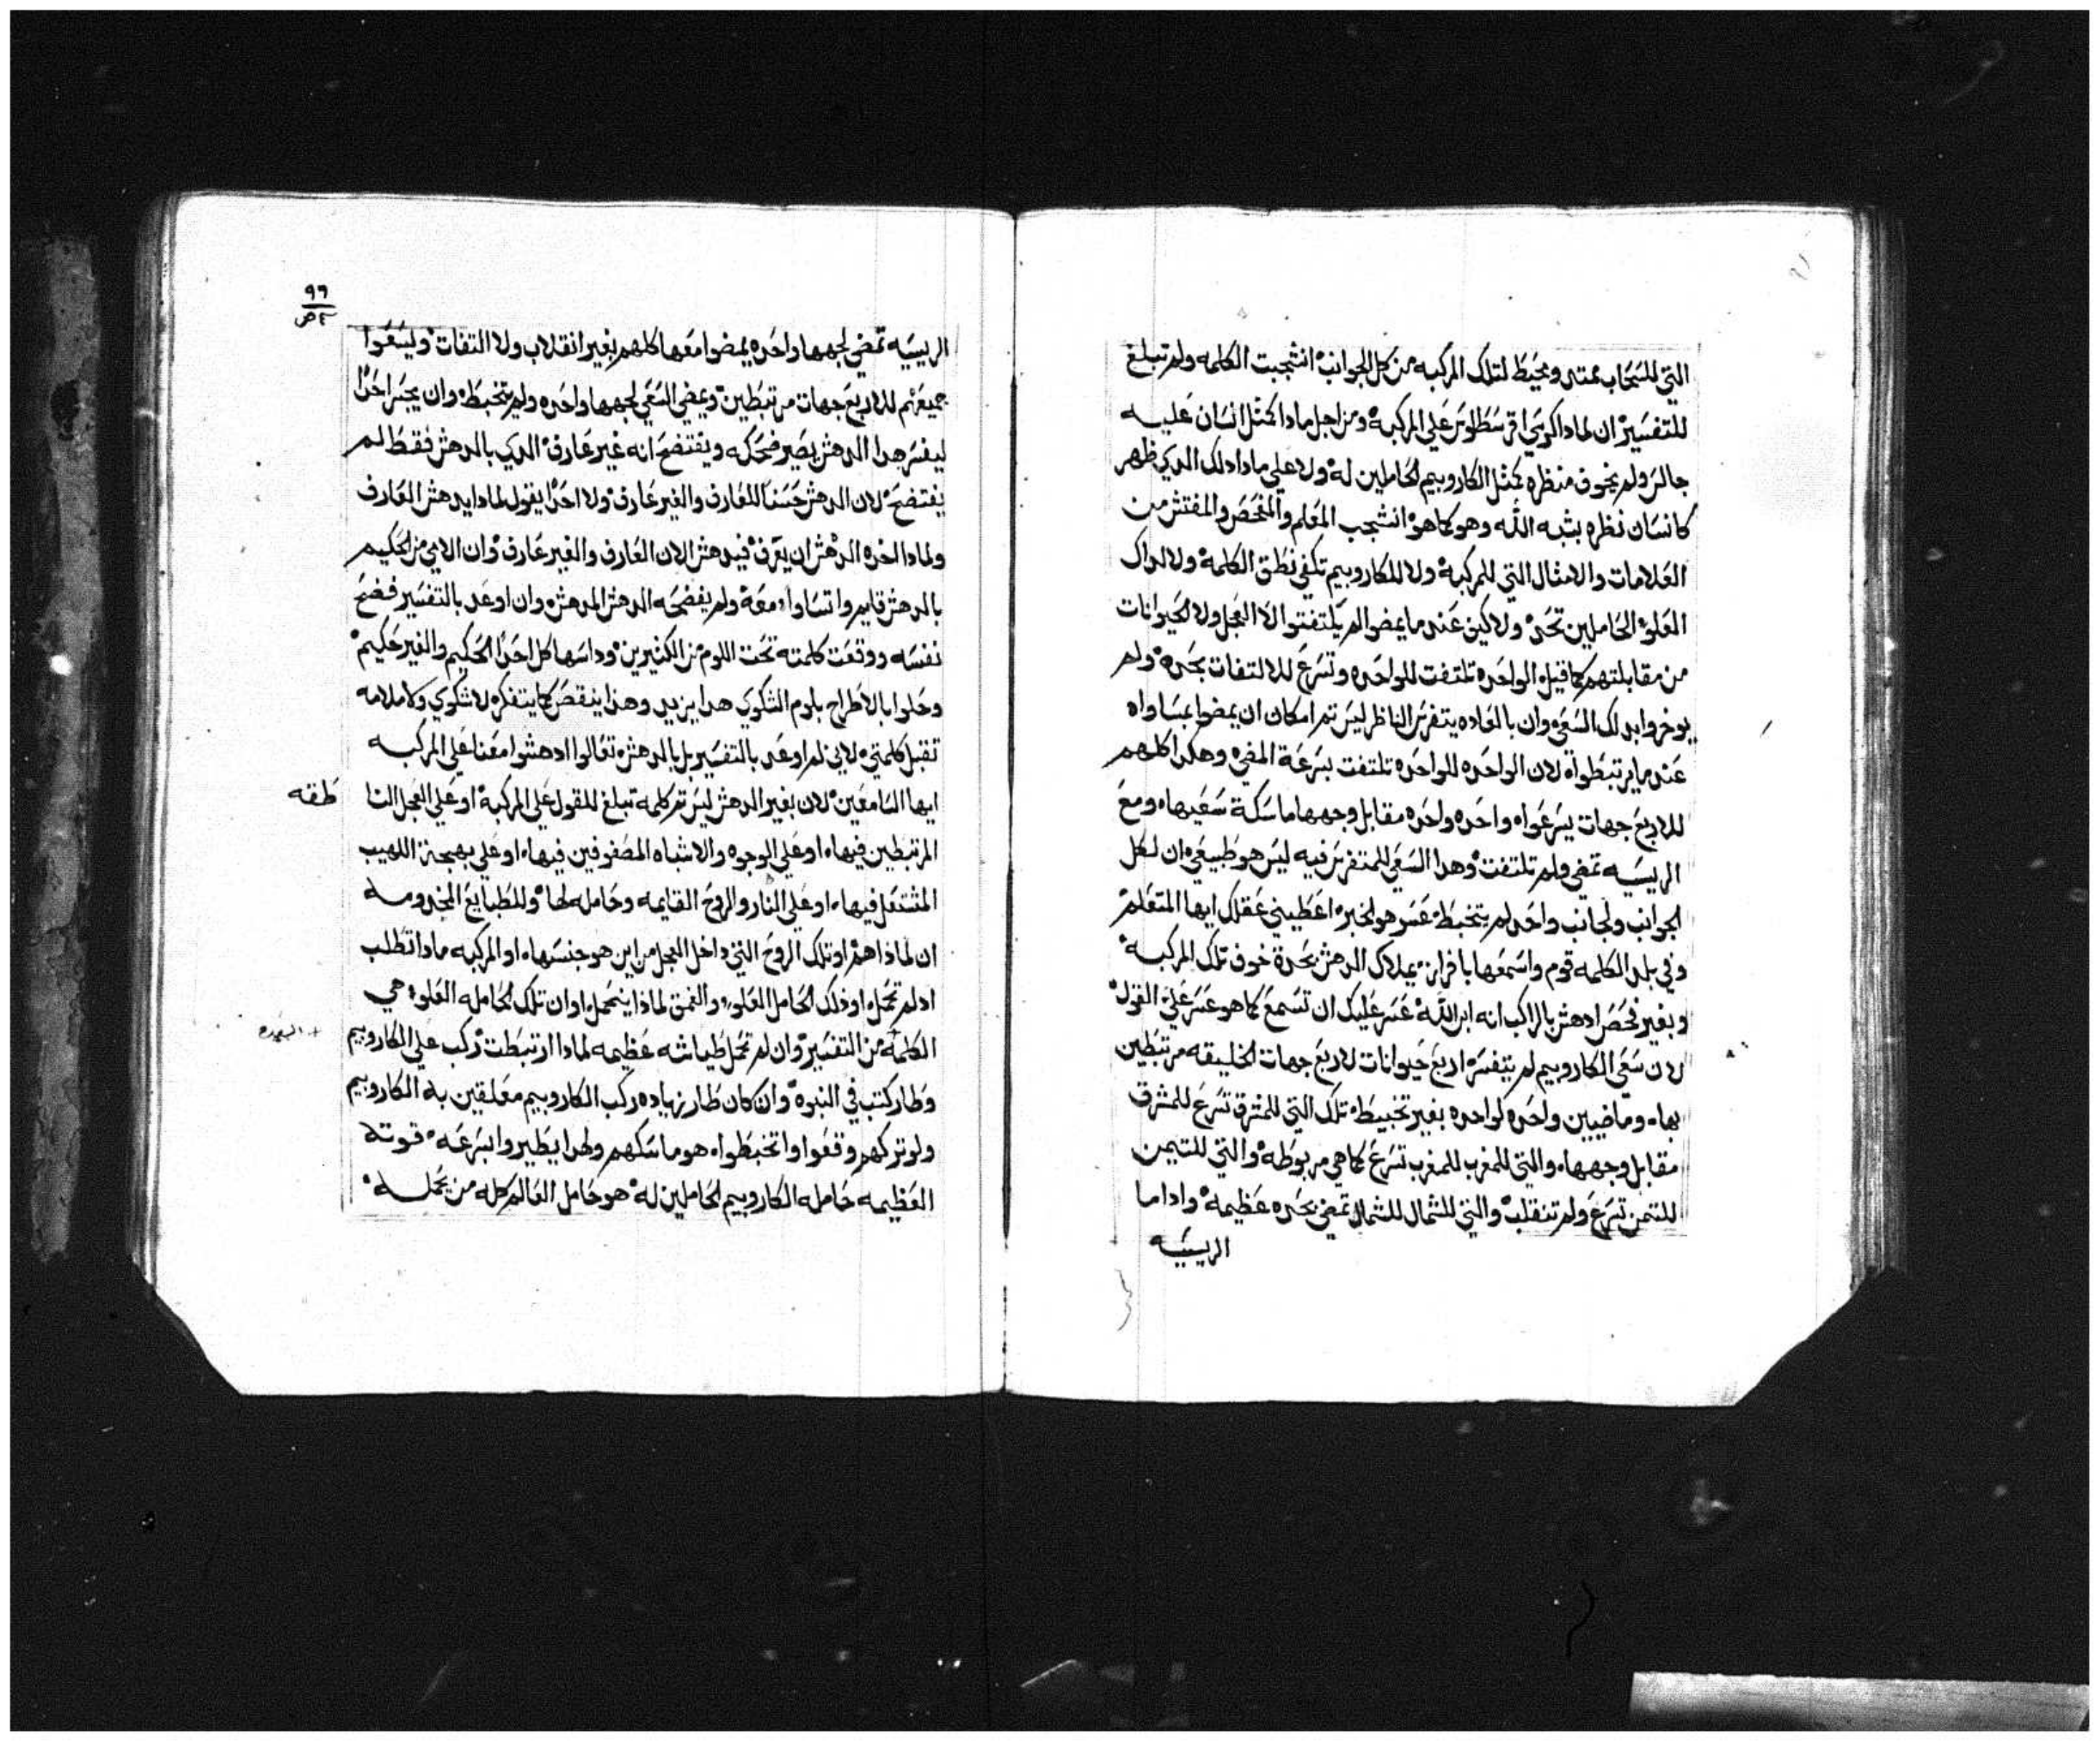 التي للسحاب ممتد ومحيط لتلك المركبه من كل الجوانب انشجبت الكلمه ولم تبلغ
للتفسير ان لماذا كرسي اقرسطالوس علي المركبه ومن اجل ماذا كمثل انسان عليه
جالس ولم يخوف منظره كمثل الكاروبيم الحاملين له ولا علي ماذا ذلك الدي ظهر
كانسان نظره بشبه الله وهو كما هو انشجب المعلم والمفحص والمفتش من
العلامات والامثال التي للمركبه ولا للكاروبيم تكفي نطق الكلمه ولا لذاك
العلو الحاملين تحد ولاكين عندما يمضوا لم يلتفتوا لا العجل ولا الحيوانات
من مقابلتهم كما قيل الواحده تلتفت للواحده وتسرع للالتفات بحده ولم
يوخروا بدلك السعي وان بالعاده يتفرس الناظر ليس تم امكان ان يمضوا بمساواه
عندما يرتبطوا لان الواحده للواحده تلتفت بسرعة المضي وهكدا كلهم
للاربع جهات يسرعوا واحده واحده مقابل وجهها ماسكة سعيها ومع
الريسيه تمضي ولم تلتفت وهدا السعي للمتفرس فيه ليس هو طبيعي ان لكل
الجوانب ولجانب واحد لم يتخبط عسر هو الخبر اعطيني عقلك ايها المتعلم
وفي بلد الكلمه قوم واسمعها بافراز يملاك الدهش بحدة خوف تلك المركبه
وبغير فحص ادهش بالراكب انه ابن الله عسر عليك ان تسمع كما هو عسر علي القول
لان سعي الكاروبيم لم يتفسر اربع حيوانات لاربع جهات الخليقه مرتبطين
بها وماضيين واحده لواحده بغير تخبيط تلك التي للمشرق تسرع للمشرق
مقابل وجهها والتي للمغرب للمغرب تسرع كما هي مربوطه والتي للتيمن
للتيمن تسرع ولم تنقلب والتي للشمال للشمال تمضي بحده عظيمه واداما
الريسيه
٩٦
الريسيه تمضي لجهها واحده يمضوا معها كلهم بغير انقلاب ولا التفات وليسعوا
جميعهم للاربع جهات مرتبطين ويمضي السعي لجهها واحده ولم يتخبط وان يجسر احدا
ليفسر هدا الدهش يصير ضحكه ويفتضح انه غير عارف الدي بالدهش فقط لم
يفتضح لان الدهش حسنا للعارف والغير عارف ولا احدا يقول لماذا يدهش العارف
ولماذا اخده الدهش ان يعرف فيدهش الان العارف والغير عارف وان الابي من الحكيم
بالدهش قايم واتساوا معه ولم يفضحه الدهش المدهش وان اوعد بالتفسير فضح
نفسه ووقعت كلمته تحت اللوم من الكثيرين وداسها كل احدا الحكيم والغير حكيم
وحلوا بالاطراح بلوم الشكوي هدا يزيد وهذا ينقص كما يتفكر لا شكوي ولا ملامه
تقبل كلمتي لاني لم اوعد بالتفسير بل بالدهش تعالوا ادهشوا معنا علي المركبه
ايها السامعين لان بغير الدهش ليس تم كلمه تبلغ للقول علي المركبه او علي العجل النا
طقه
المرتبطين فيها او علي الوجوه والاشباه المصفوفين فيها او علي بهجة اللهيب
المشتعل فيها او علي النار والروح القايمه وحامله لها وللطبايع المخدومه
ان لماذا هم او تلك الروح التي داخل العجل من اين هو جنسها او المركبه ماذا تطلب
اد لم تحمل او ذلك الحامل العلو والعمق لماذا ينحمل او ان تلك الحامله العلو هي
الكلمه من التفسير وان لم تحمل طياشه عظيمه لماذا ارتبطت ركب علي الكاروبيم
وطار كتب في النبوه وان كان طار زياده ركب الكاروبيم معلقين به الكاروبيم
ولو تركهم وقعوا واتخبطوا هو ماسكهم ولهدا يطيروا بسرعه قوته
العظيمه حامله الكاروبيم الحاملين له هو حامل العالم كله من يحمله